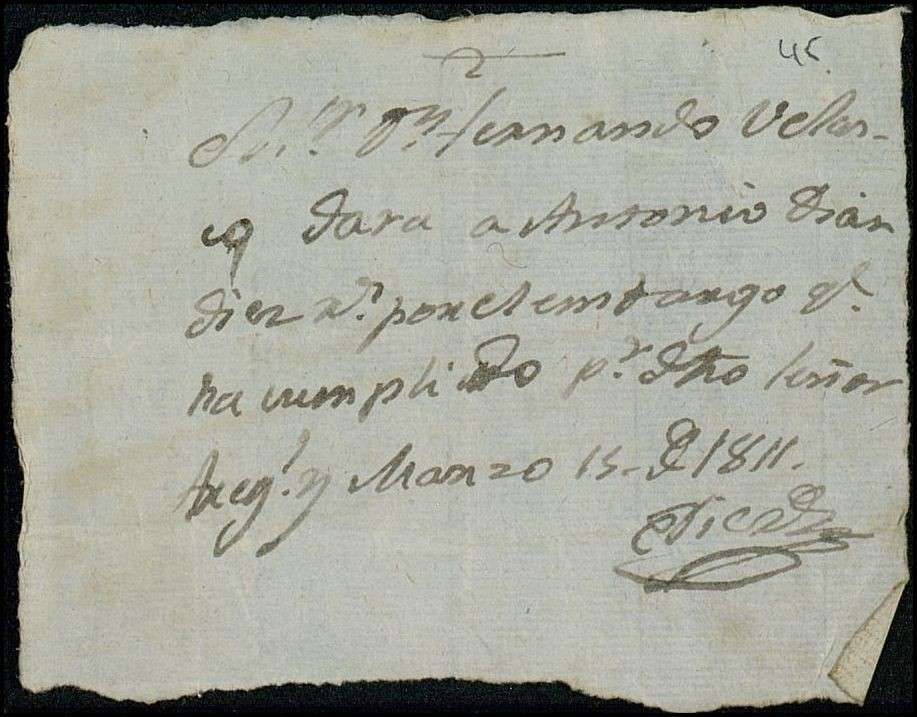 45
S.or Dn. Fernando Velas-
co dara a Antonio Dias
diez rs. por el embargo qe.
ha cumplido pr. dho señor
Areqa. y Marzo 15. de 1811.